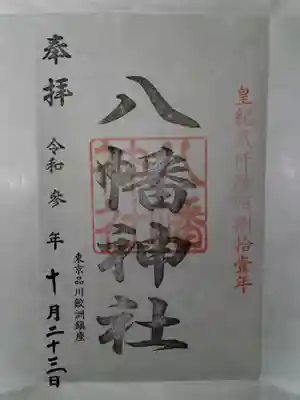 皇紀貳阡陸佰捌拾壹年
八幡神社
東京品川鮫洲鎮座
奉拝
令和參年十月二十三日